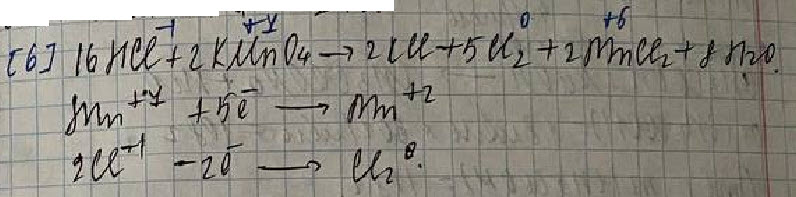 [6] 16HCl⁻¹ + 2KMn⁺⁷O₄ → 2Cl + 5Cl₂⁰ + 2Mn⁺⁶Cl₂ + 8H₂O.
Mn⁺⁷ + 5e⁻ → Mn⁺²
2Cl⁻¹ - 2e⁻ → Cl₂⁰.